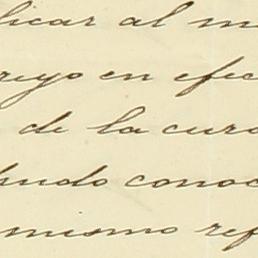 licar al m
reyo en efec
de la cura
hudo conoc
mismo ref